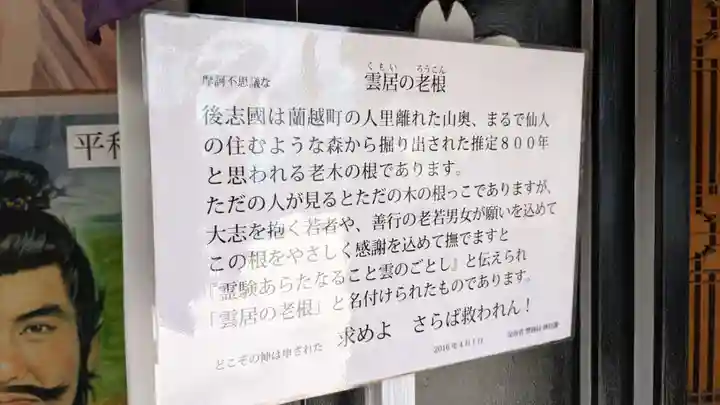 摩訶不思議な
くもい ろうこん
雲居の老根
後志國は蘭越町の人里離れた山奥、まるで仙人
の住むような森から掘り出された推定８００年
と思われる老木の根であります。
ただの人が見るとただの木の根っこでありますが、
大志を抱く若者や、善行の老若男女が願いを込めて
この根をやさしく感謝を込めて撫でますと
『霊験あらたなること雲のごとし』と伝えられ
「雲居の老根」と名付けられたものであります。
どこぞの神は申された
求めよ さらば救われん！
2016年4月1日
平和